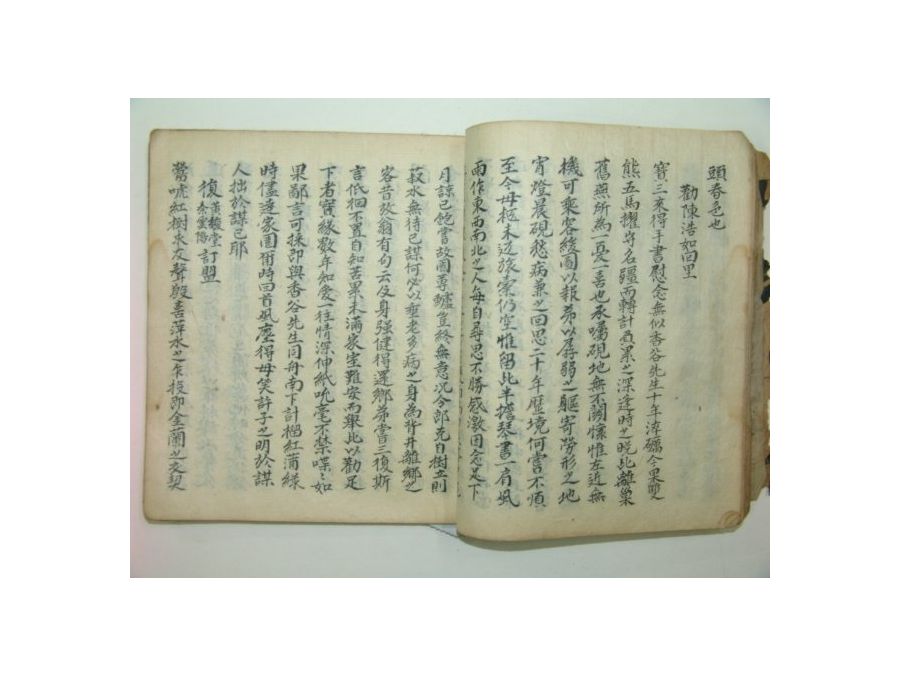 頭春色也
勸陳浩如回里
寶三來得手書慰念無似香谷先生十年淬礪今果雙
熊五馬耀守名疆而轉計煮累之深逢時之晩此離巢
舊燕所為一哀一喜也承囑硯地無不關懷惟左近無
機可乘容緩圖以報弟以孱弱之軀寄勞形之地
宵燈晨硯愁病兼之回思二十年歷境何嘗不順
至今母柩未返旅橐仍空惟留此半擔琴書一肩風
雨作東西南北之人每自尋思不勝感激因念足下
月諒已飽嘗故園專鱸豈終無意况令郎克自樹立則
菽水無待已謀何必以垂老多病之身為背井離鄉之
客昔放翁有句云及身強健得還鄉弟嘗三復斯
言低徊不置自知苦累未滿家室難安而舉此以勸足
下者實緣數年知愛一往情深伸紙吮毫不禁喋〻如
果鄙言可採即與香谷先生同舟南下計榴紅蒲綠
時儘達家園爾時回首風塵得毋笑許子之明於謀
人拙於謀已耶
復黃馥堂余雲陽訂盟
鶯啼紅樹求友聲殷喜萍水之乍投即金蘭之交契